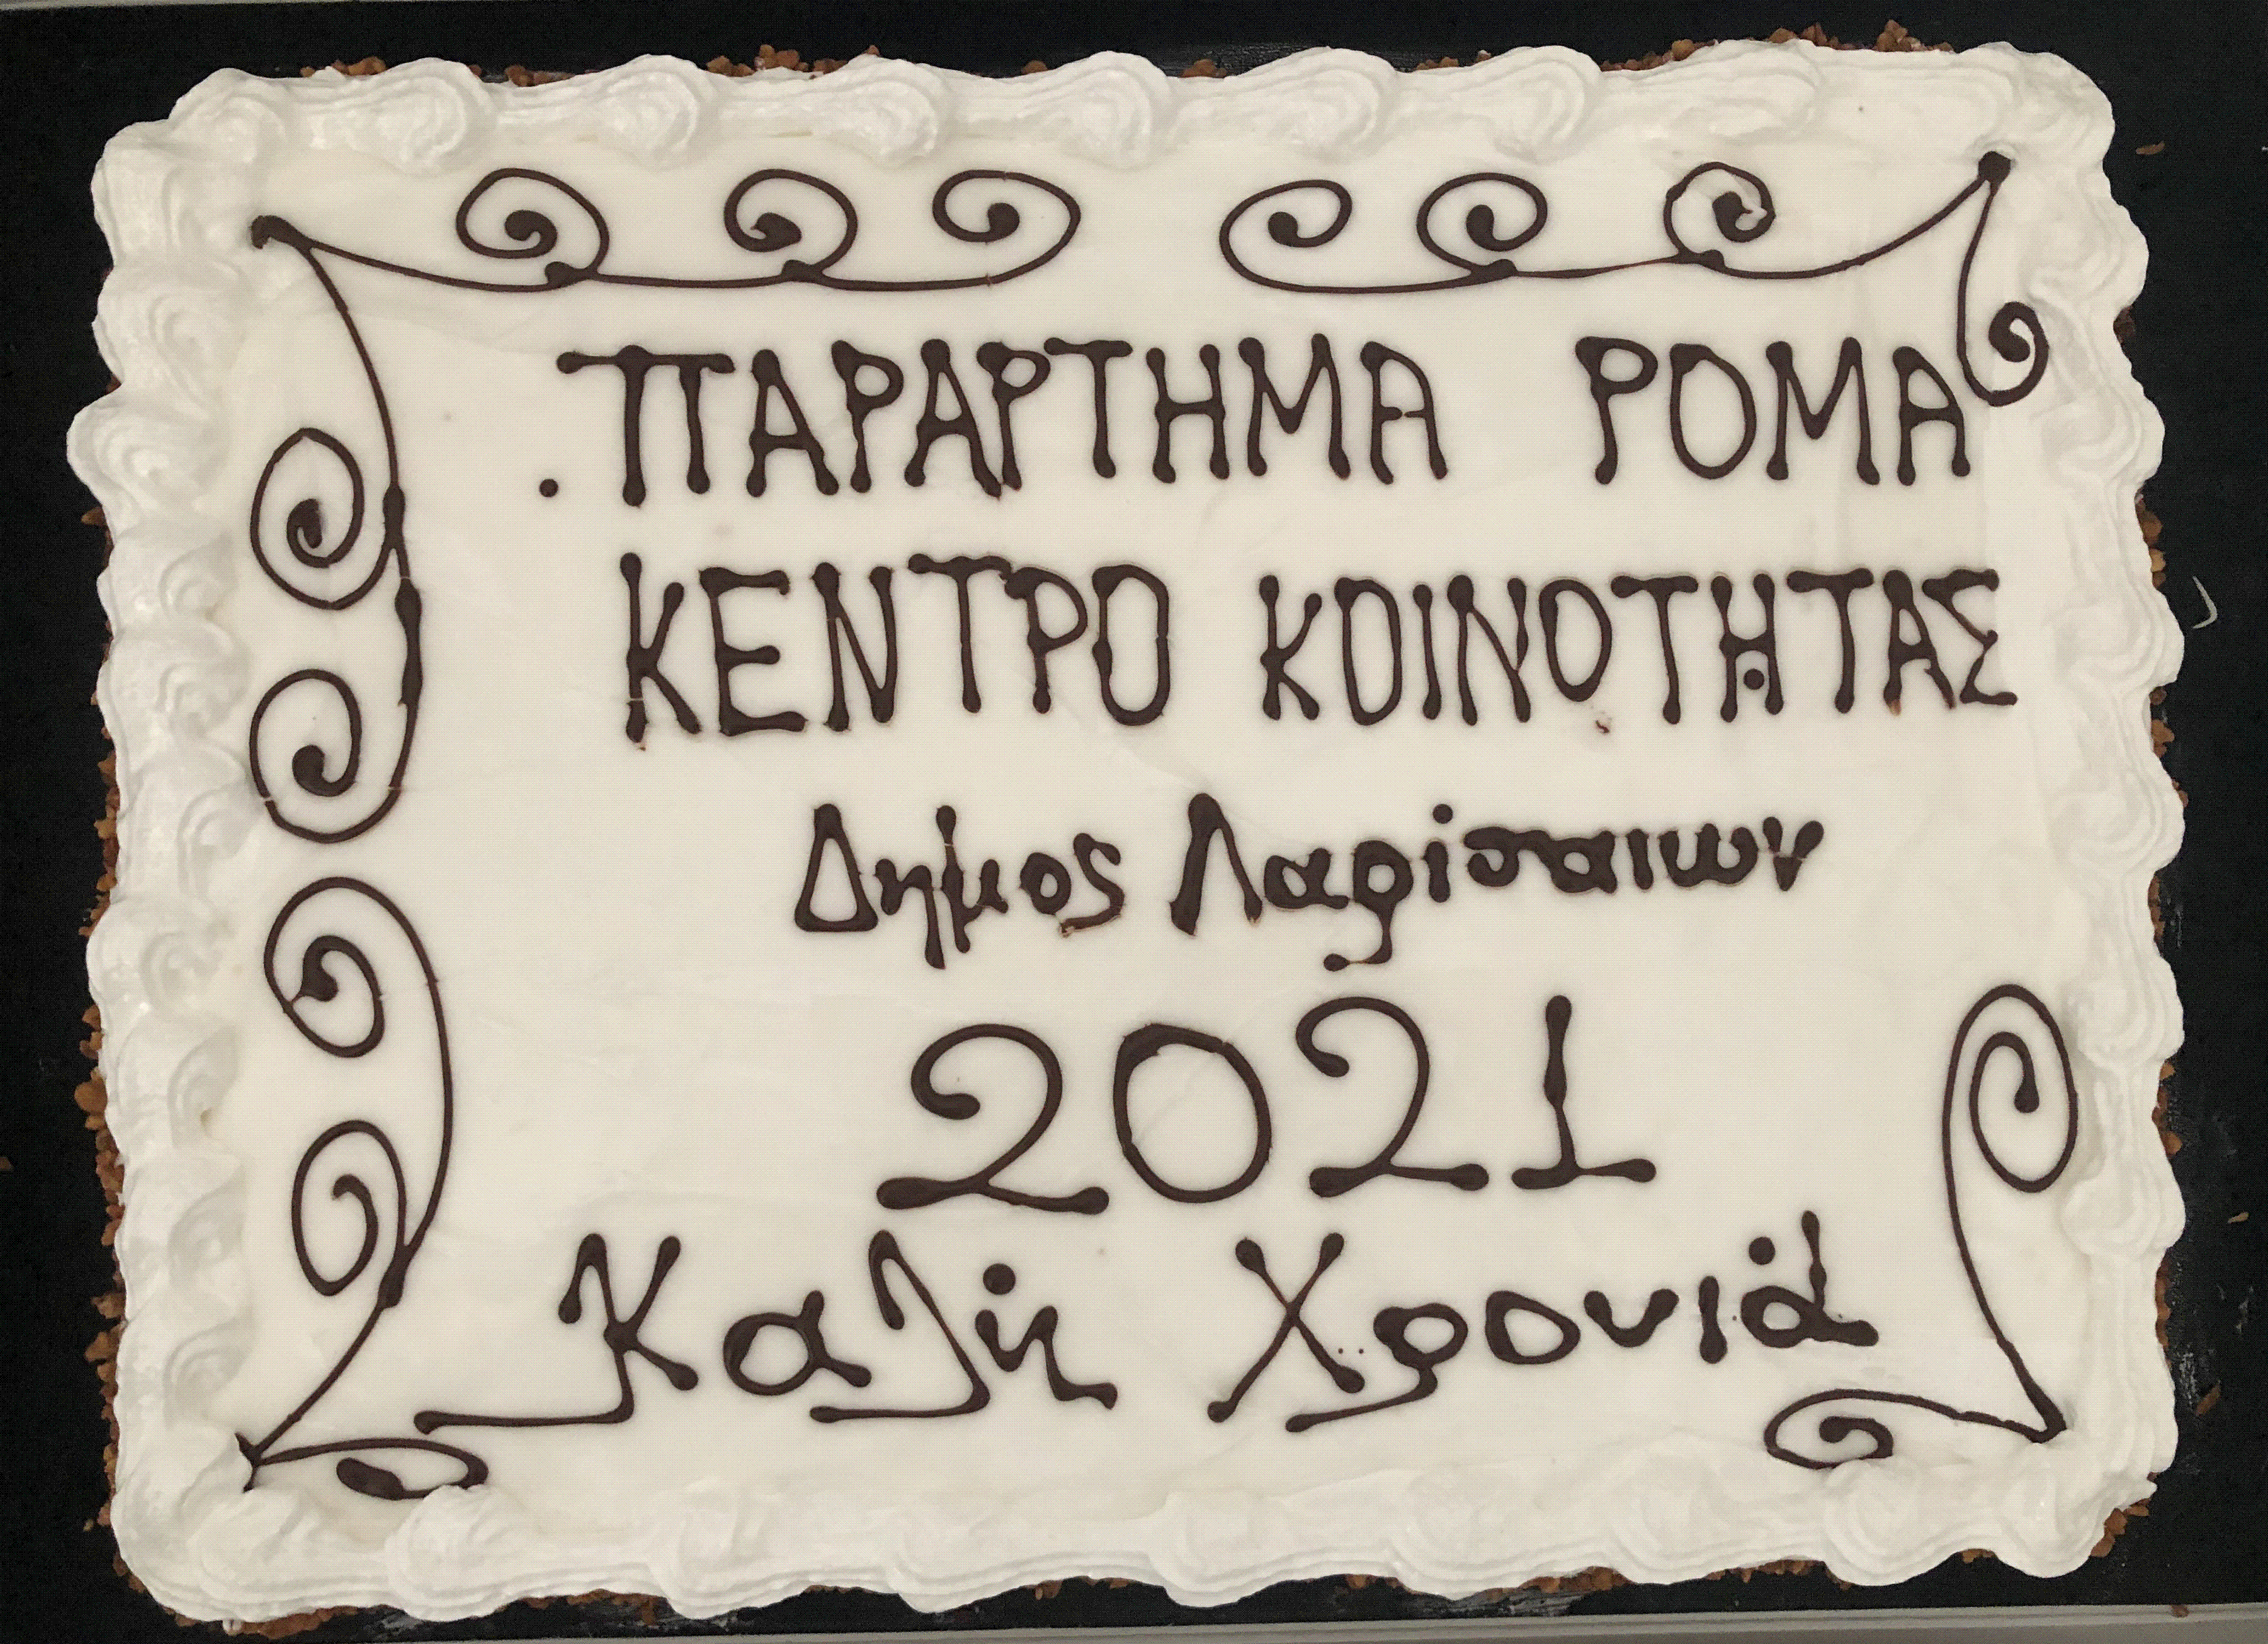 ΠΑΡΑΡΤΗΜΑ ΡΟΜΑ
ΚΕΝΤΡΟ ΚΟΙΝΟΤΗΤΑΣ
Δημος Λαρισαιων
2021
Καλή Χρονιά